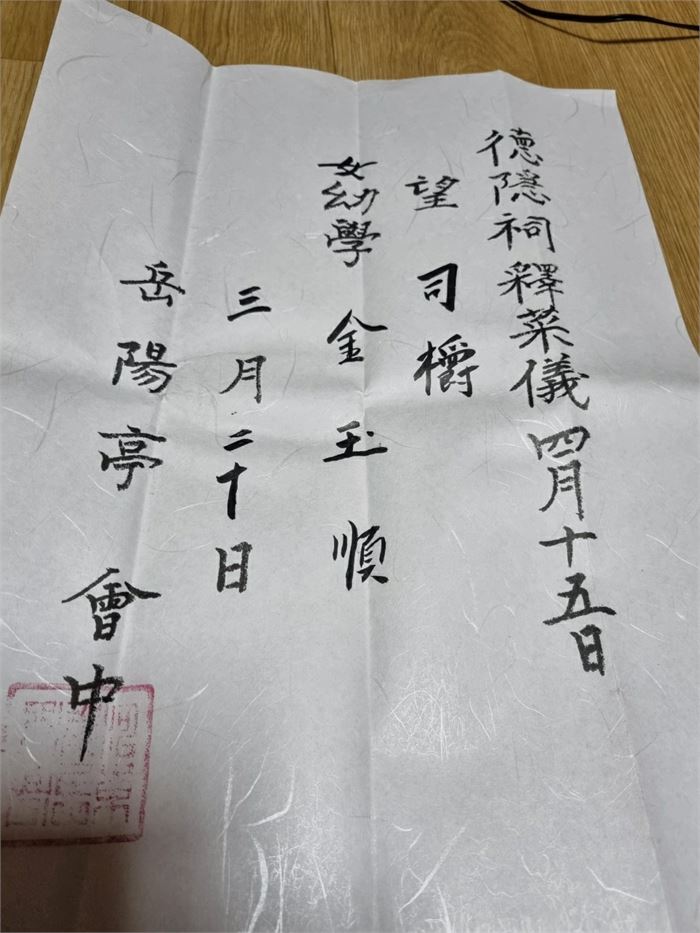 德隱祠釋菜儀四月十五日
望 司樽
女幼學 金玉順
三月二十日
岳陽亭 會中